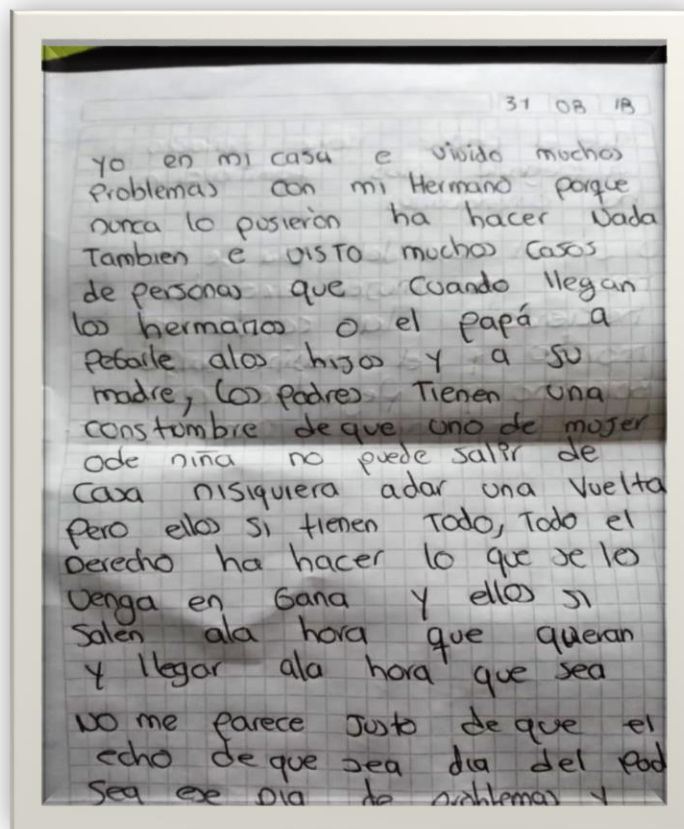 31 08 18
yo en mi casa e vivido muchos
Problemas con mi Hermano porque
nunca lo pusierón ha hacer Nada
Tambien e VISTO muchos Casos
de Personas que Cuando llegan
los hermanos o el Papá a
Pegarle alos hijos y a su
madre, los Padres Tienen una
constumbre de que uno de mujer
ode niña no puede salir de
Casa nisiquiera adar una Vuelta
Pero ellos si tienen Todo, Todo el
Derecho ha hacer lo que se les
Venga en Gana y ellos si
Salen ala hora que quieran
y llegar ala hora que sea
NO me Parece Justo de que el
echo de que sea dia del Pad
Sea ese Dia de problemas y